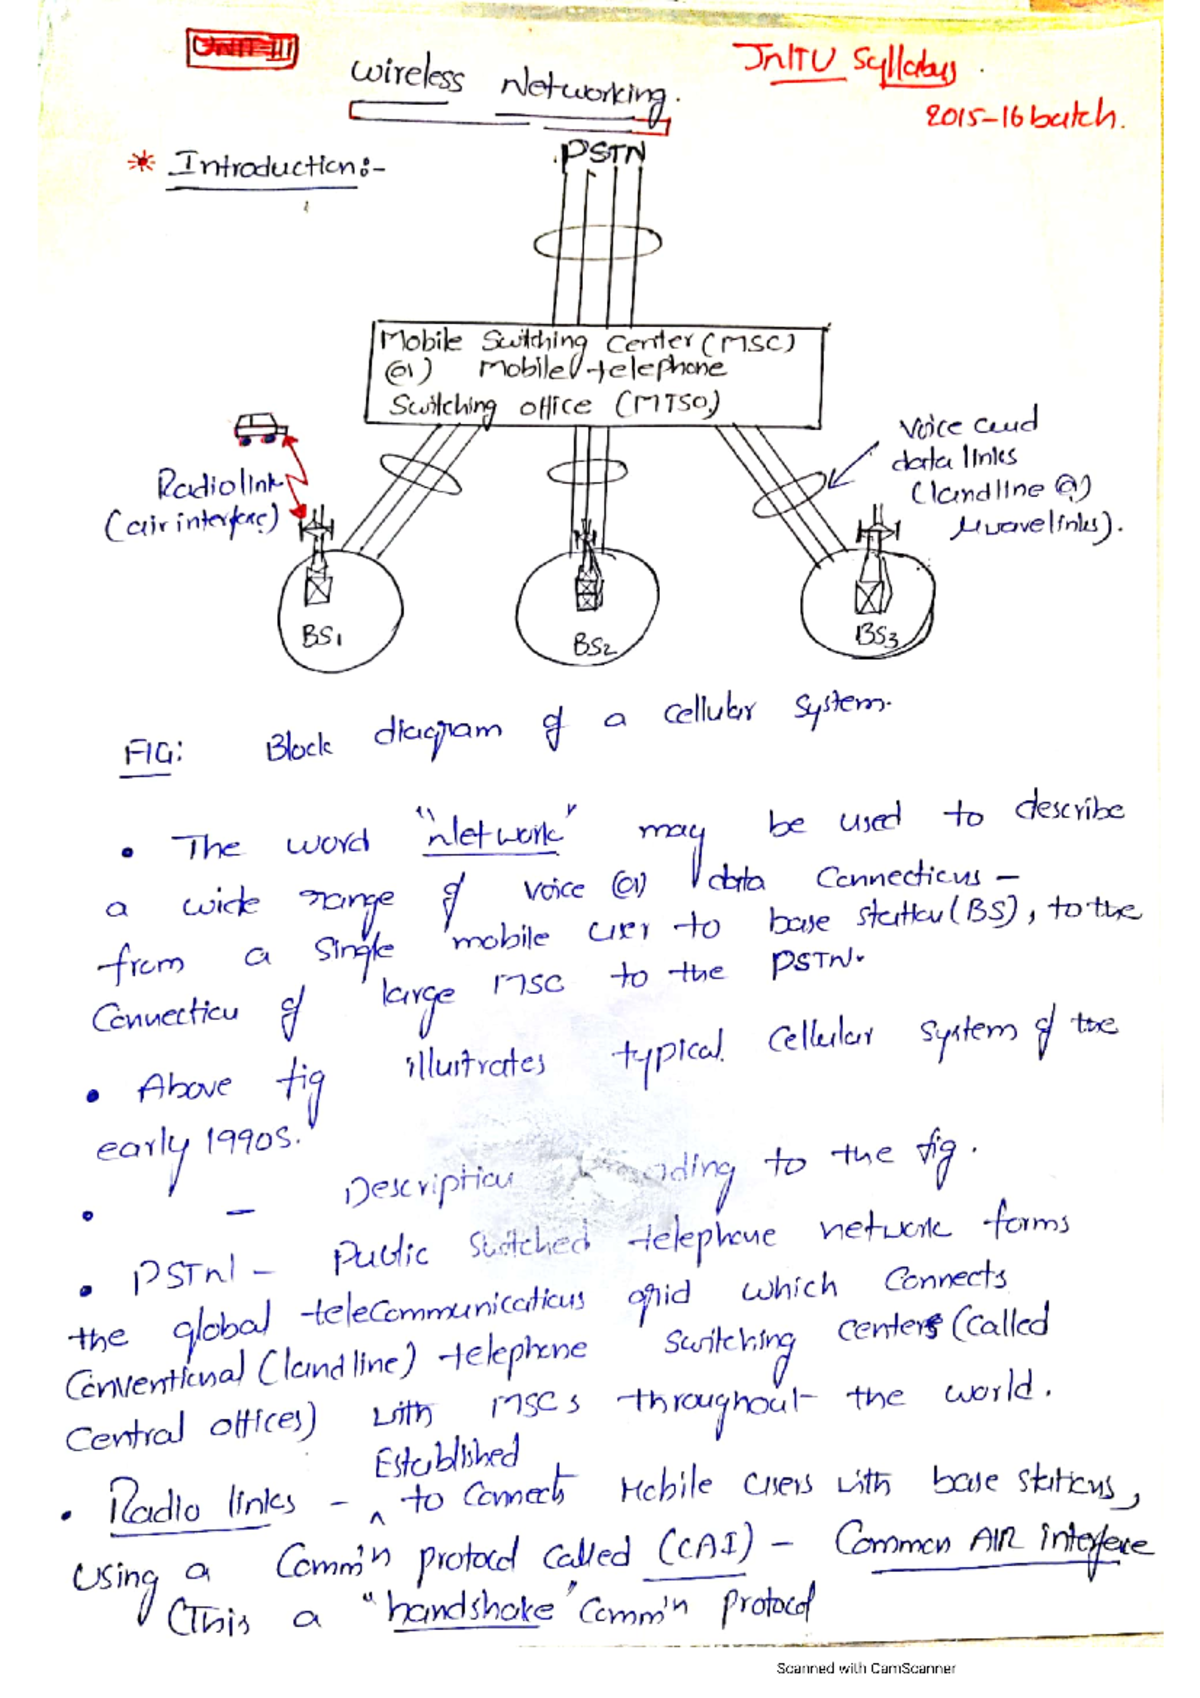 UNIT-III
JNTU Syllabus.
Wireless Networking.
2015-16 batch.
* Introduction:-
PSTN
Mobile Switching Center (MSC)
(or) Mobile telephone
Switching office (MTSO)
Radio link
(air interface)
Voice and
data links
(landline (or)
μwave links).
BS1
BS2
BS3
FIG: Block diagram of a cellular system.
• The word "Network" may be used to describe
a wide range of voice (or) data Connections -
from a single mobile user to base station (BS), to the
Connection of large MSC to the PSTN.
• Above fig illustrates typical cellular system of the
early 1990s.
• - Description to the fig.
• PSTN - Public switched telephone network forms
the global telecommunications grid which connects
Conventional (landline) telephone switching centers (called
Central offices) with MSCs throughout the world.
• Radio links - Established to connects Mobile users with base stations,
using a Comm'n protocol called (CAI) - Common AIR interface
(This a "handshake" Comm'n protocol
Scanned with CamScanner